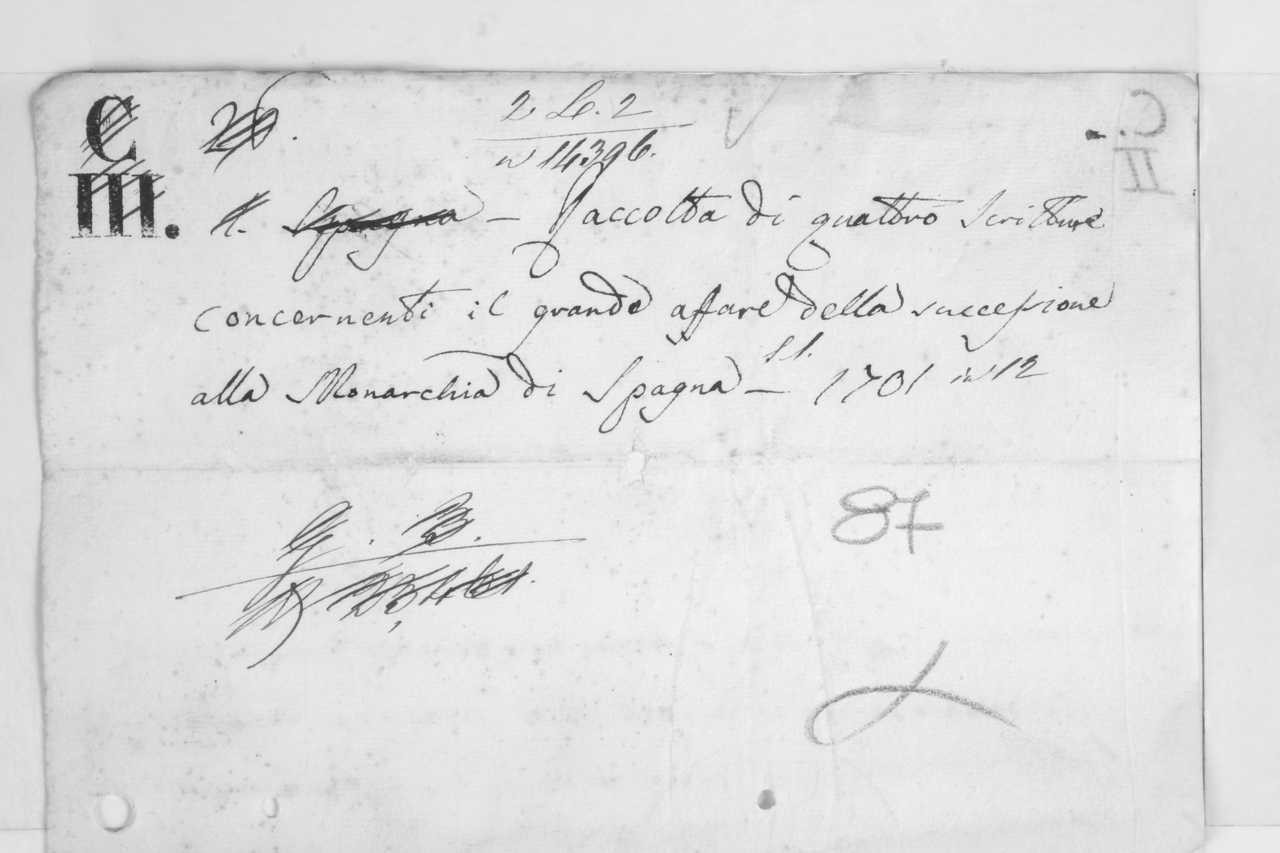 C
III.
26.
2 L. 2
n 14396.
C.
II
Raccolta di quattro Scritture
concernenti il grande affare della successione
alla Monarchia di Spagna — s.l. 1701 in 12
G. B.
87